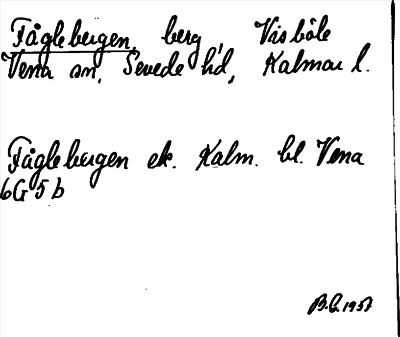 Fåglebergen, berg Visböle
Vena sn, Sevede hd, Kalmar l.
Fåglebergen ek. Kalm. bl. Vena
6G5b
B.E. 1957